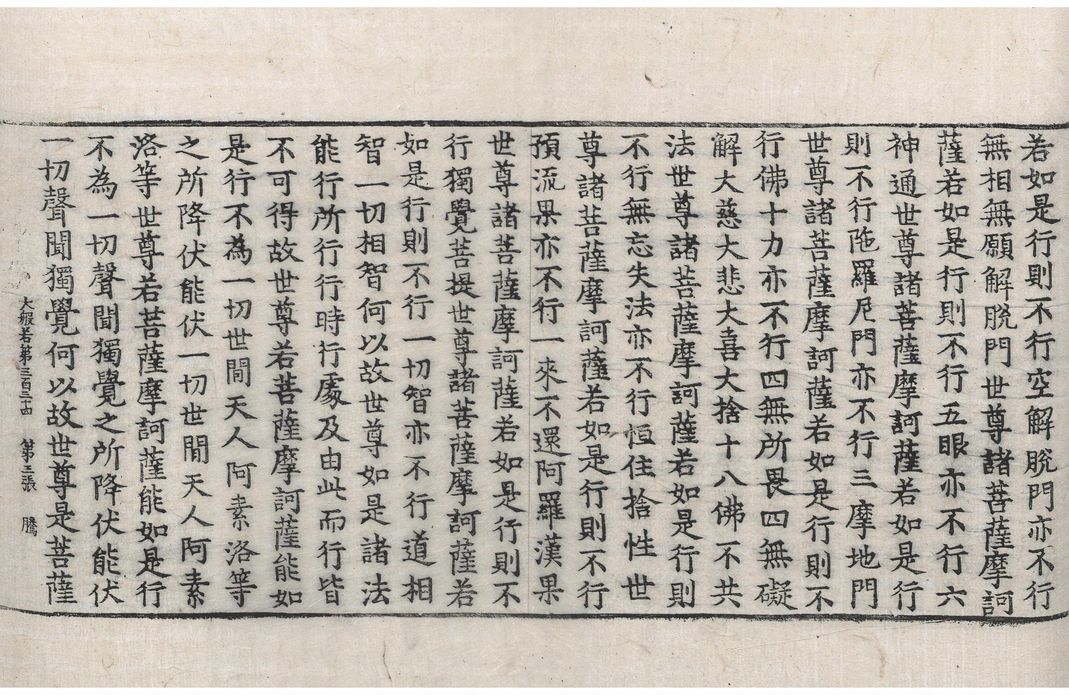 若如是行則不行空解脫門亦不行
無相無願解脫門世尊諸菩薩摩訶
薩若如是行則不行五眼亦不行六
神通世尊諸菩薩摩訶薩若如是行
則不行陁羅尼門亦不行三摩地門
世尊諸菩薩摩訶薩若如是行則不
行佛十力亦不行四無所畏四無礙
解大慈大悲大喜大捨十八佛不共
法世尊諸菩薩摩訶薩若如是行則
不行無忘失法亦不行恒住捨性世
尊諸菩薩摩訶薩若如是行則不行
預流果亦不行一來不還阿羅漢果
世尊諸菩薩摩訶薩若如是行則不
行獨覺菩提世尊諸菩薩摩訶薩若
如是行則不行一切智亦不行道相
智一切相智何以故世尊如是諸法
能行所行行時行處及由此而行皆
不可得故世尊若菩薩摩訶薩能如
是行不為一切世間天人阿素洛等
之所降伏能伏一切世間天人阿素
洛等世尊若菩薩摩訶薩能如是行
不為一切聲聞獨覺之所降伏能伏
一切聲聞獨覺何以故世尊是菩薩
大般若第三百三十四 第三張 騰